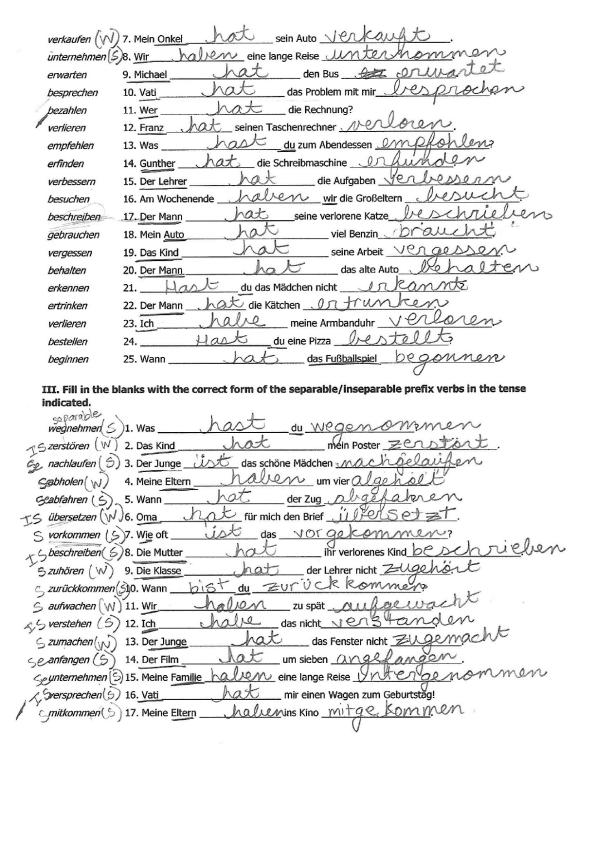 verkaufen (W) 7. Mein Onkel hat sein Auto verkauft.
unternehmen (S) 8. Wir haben eine lange Reise unternommen
erwarten 9. Michael hat den Bus erwartet
besprechen 10. Vati hat das Problem mit mir besprochen
bezahlen 11. Wer hat die Rechnung?
verlieren 12. Franz hat seinen Taschenrechner verloren.
empfehlen 13. Was hast du zum Abendessen empfohlen?
erfinden 14. Gunther hat die Schreibmaschine erfunden
verbessern 15. Der Lehrer hat die Aufgaben verbessern
besuchen 16. Am Wochenende haben wir die Großeltern besucht
beschreiben 17. Der Mann hat seine verlorene Katze beschrieben
gebrauchen 18. Mein Auto hat viel Benzin braucht.
vergessen 19. Das Kind hat seine Arbeit vergessen.
behalten 20. Der Mann hat das alte Auto behalten
erkennen 21. Hast du das Mädchen nicht erkannt
ertrinken 22. Der Mann hat die Kätchen ertrunken
verlieren 23. Ich habe meine Armbanduhr verloren
bestellen 24. Hast du eine Pizza bestellt?
beginnen 25. Wann hat das Fußballspiel begonnen
III. Fill in the blanks with the correct form of the separable/inseparable prefix verbs in the tense
indicated.
separable
wegnehmen (S) 1. Was hast du wegenommen
IS zerstören (W) 2. Das Kind hat mein Poster zerstört.
Se nachlaufen (S) 3. Der Junge ist das schöne Mädchen nachgelaufen
S abholen (W) 4. Meine Eltern haben um vier abgeholt
Se abfahren (S) 5. Wann hat der Zug abgefahren
IS übersetzen (W) 6. Oma hat für mich den Brief übersetzt.
S vorkommen (S) 7. Wie oft ist das vorgekommen?
IS beschreiben (S) 8. Die Mutter hat ihr verlorenes Kind beschrieben
S zuhören (W) 9. Die Klasse hat der Lehrer nicht zugehört
S zurückkommen (S) 10. Wann bist du zurückkommen
S aufwachen (W) 11. Wir haben zu spät aufgewacht
IS verstehen (S) 12. Ich habe das nicht verstanden
S zumachen (W) 13. Der Junge hat das Fenster nicht zugemacht
Se anfangen (S) 14. Der Film hat um sieben angefangen.
Se unternehmen (S) 15. Meine Familie haben eine lange Reise untergenommen
IS versprechen (S) 16. Vati hat mir einen Wagen zum Geburtstag!
S mitkommen (S) 17. Meine Eltern haben ins Kino mitgekommen.